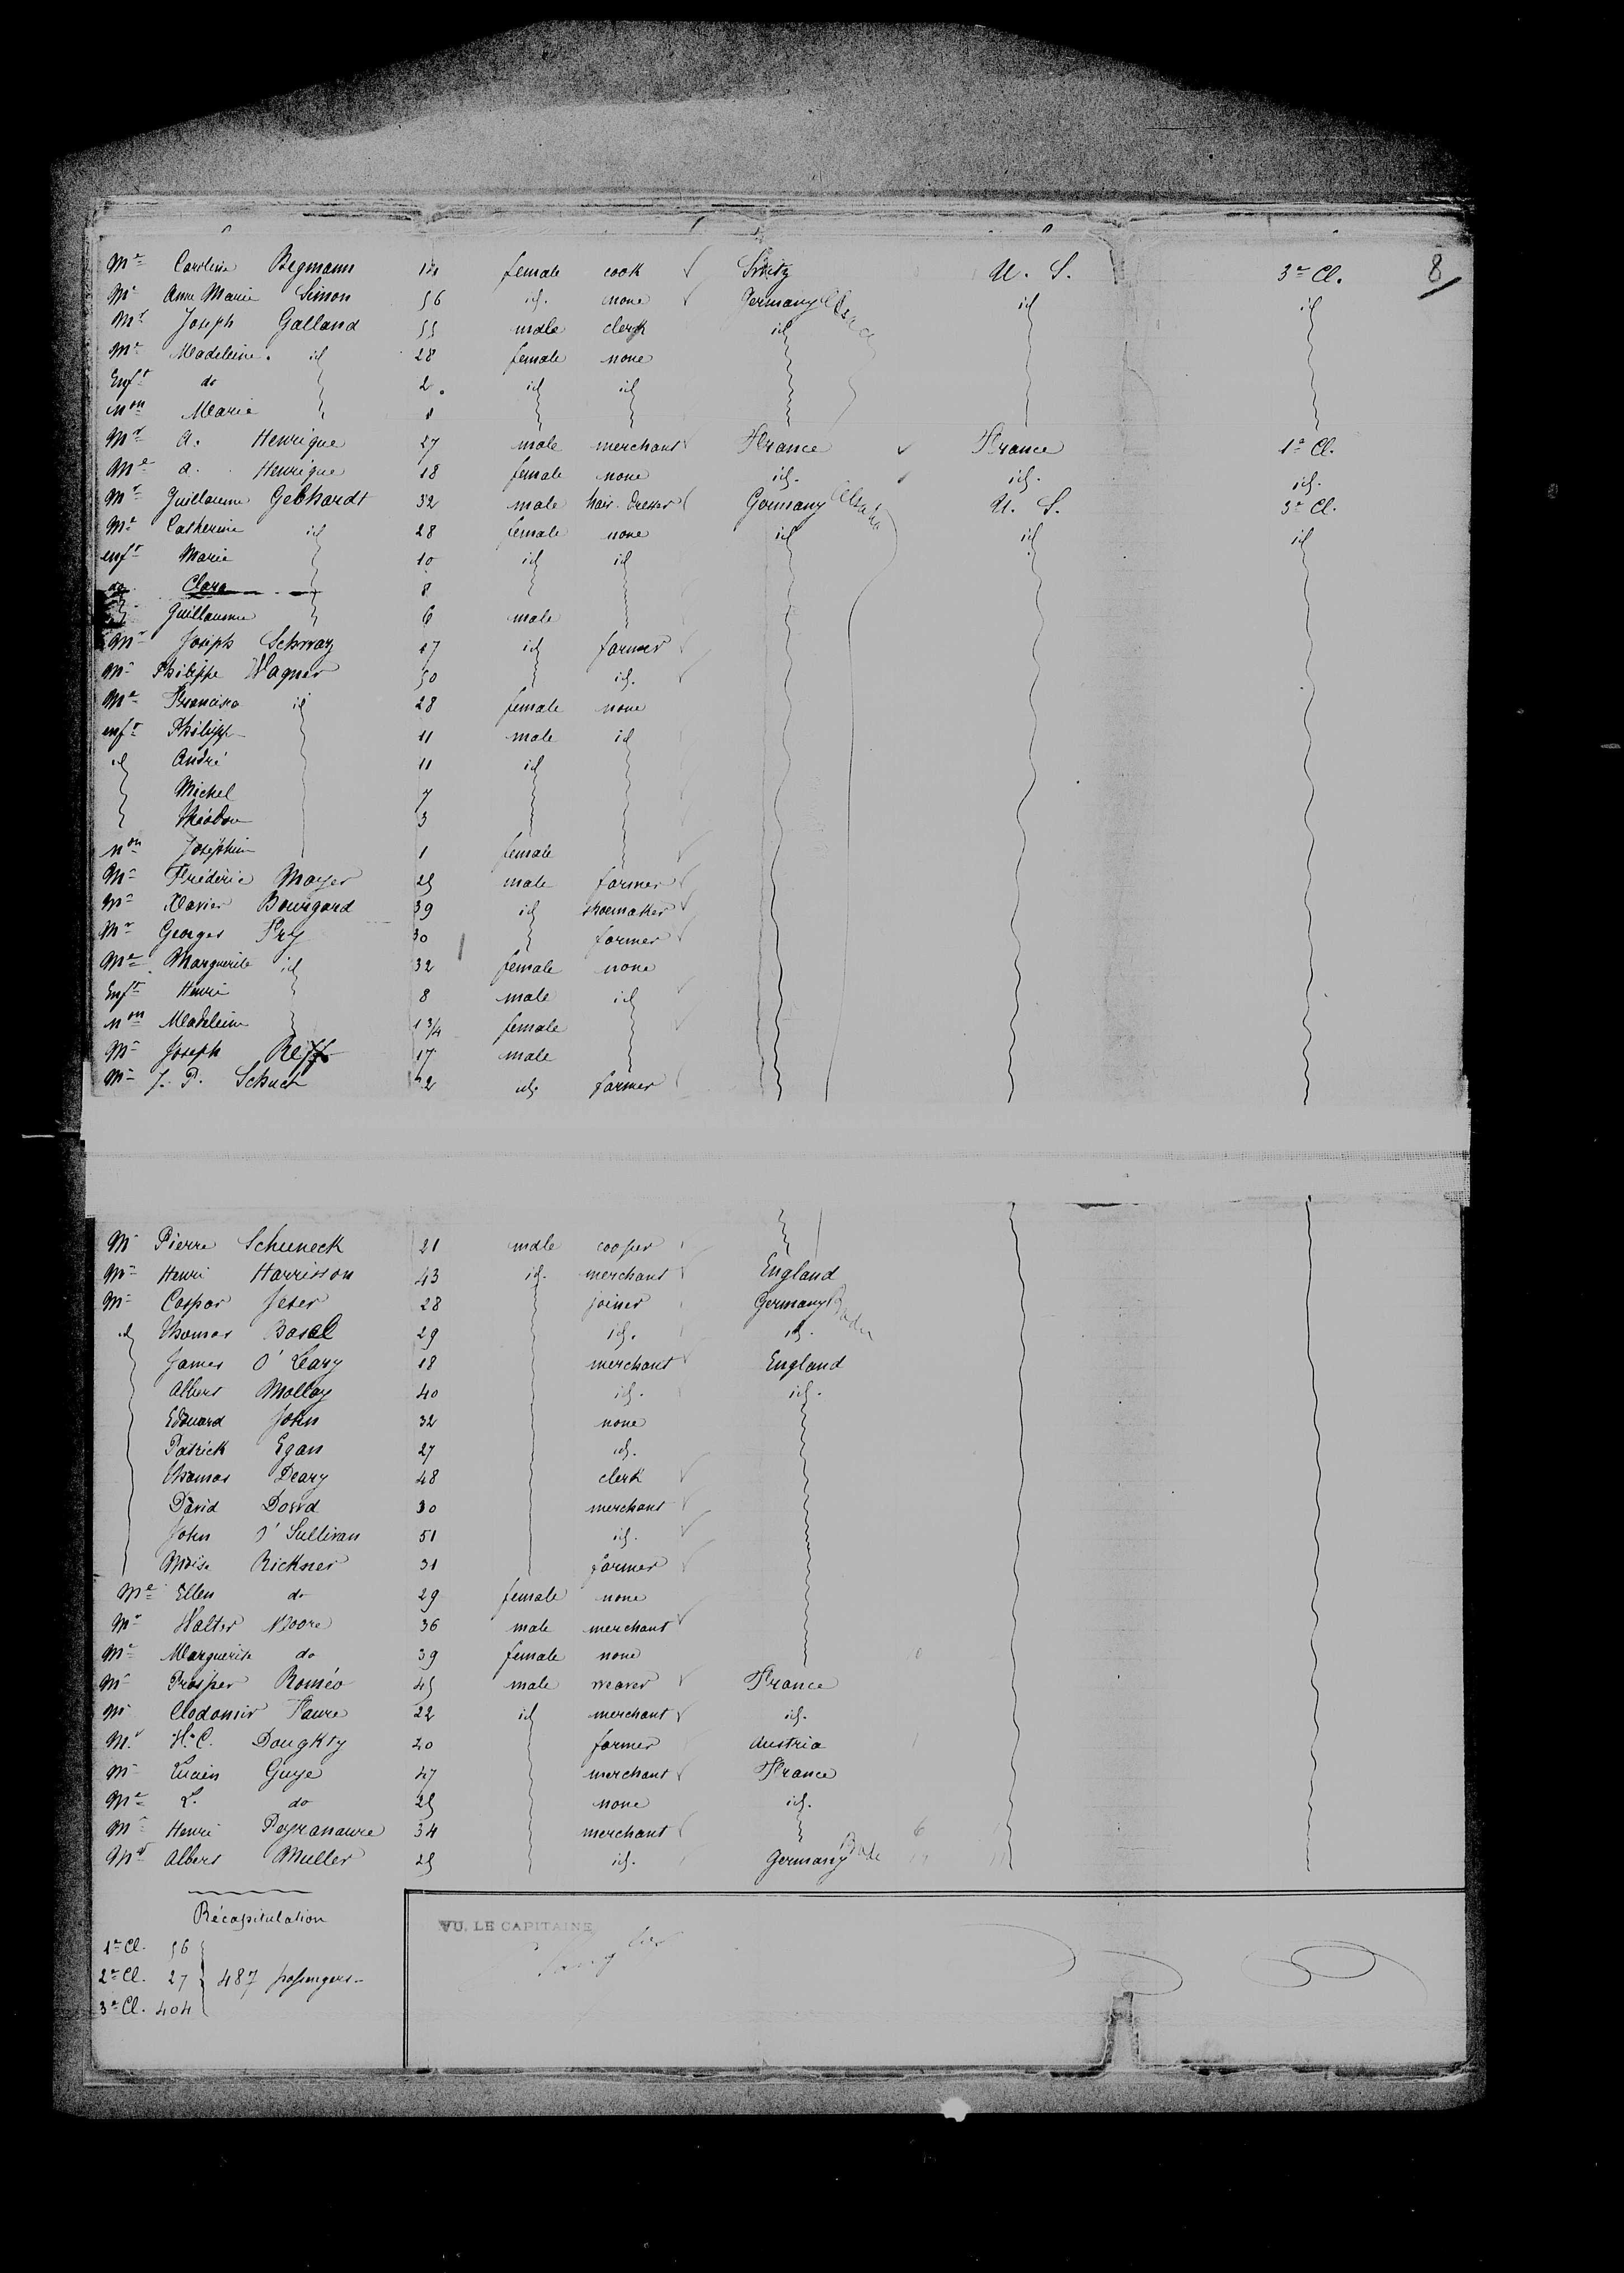 8
Me Caroline Begmann female cook Switz U. S. 3e Cl.
Me Anne Marie Simon 56 id. none Germany Alsace id id
Mr Joseph Galland 55 male clerk id
Me Madeleine id 28 female none
Enft do 2 id id
non Marie
Mr A. Henrique 27 male merchant France France 1e Cl.
Me A. Henrique 18 female none id. id. id.
Mr Guillaume Gebhardt 32 male hair-dresser Germany Alsace U. S. 3e Cl.
Me Catherine id 28 female none id id id
enft Marie 10 id id
do Clara 8
Guillaume 6 male
Mr Joseph Schwaz 17 id farmer
Mr Philippe Wagner 50 id.
Me Francisca id 28 female none
enft Philipp 11 male id
id André 11 id
Michel 7
3
non Joséphine 1 female
Mr Fréderic Mayer 25 male farmer
Mr Xavier Bourgard 39 id shoemaker
Mr Georges Fry 30 farmer
Me Marguerite id 32 female none
Enft Henri 8 male id
non Madeleine 1 3/4 female
Mr Joseph Reff 17 male
Mr J. P. Schuch id. farmer
Mr Pierre Schuneck 21 male cooper
Mr Henri Harrisson 43 id. merchant England
Mr Caspar Jeser 28 joiner Germany Baden
id Thomas Basel 29 id. id.
James O' Leary 18 merchant England
Albert Molloy 40 id. id.
Edouard John 32 none
Patrick Egan 27 id.
Thomas Deary 48 clerk
David Dowd 30 merchant
John O' Sullivan 51 id.
Moïse Rickner 31 farmer
Me Ellen do 29 female none
Mr Walter Moore 36 male merchant
Me Marguerite do 39 female none
Mr Prosper Roméo 45 male weaver France
Mr Clodomir Faure 22 id merchant id.
Mr H. C. Dougkty 20 farmer Austria
Mr Lucien Guye 47 merchant France
Me L. do 25 none id.
Mr Henri Peyranaure 34 merchant
Mr Albert Muller 25 id. Germany Bade
Récapitulation
1e Cl. 56
2e Cl. 27 487 passengers
3e Cl. 404
VU, LE CAPITAINE